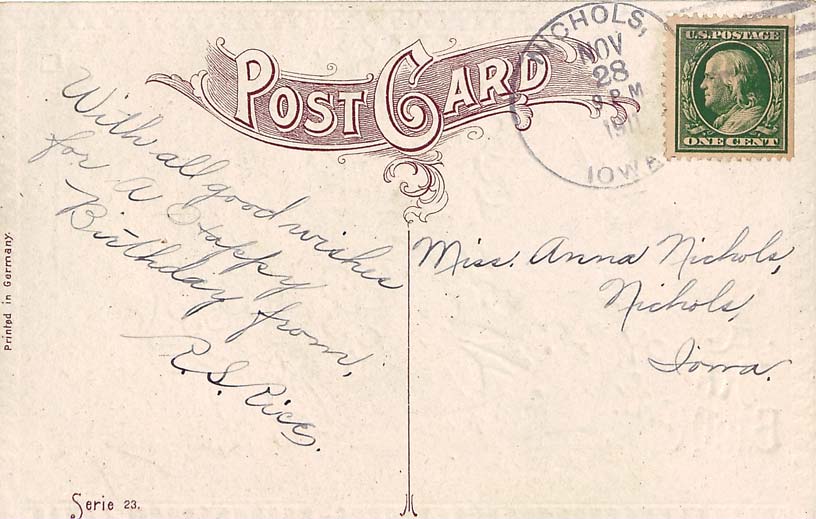 POST CARD
NICHOLS,
NOV
28
PM
IOWA
U.S. POSTAGE
ONE CENT
With all good wishes
for A Happy
Birthday from,
R. S. Rice.
Miss. Anna Nichols,
Nichols,
Iowa.
Printed in Germany.
Serie 23.